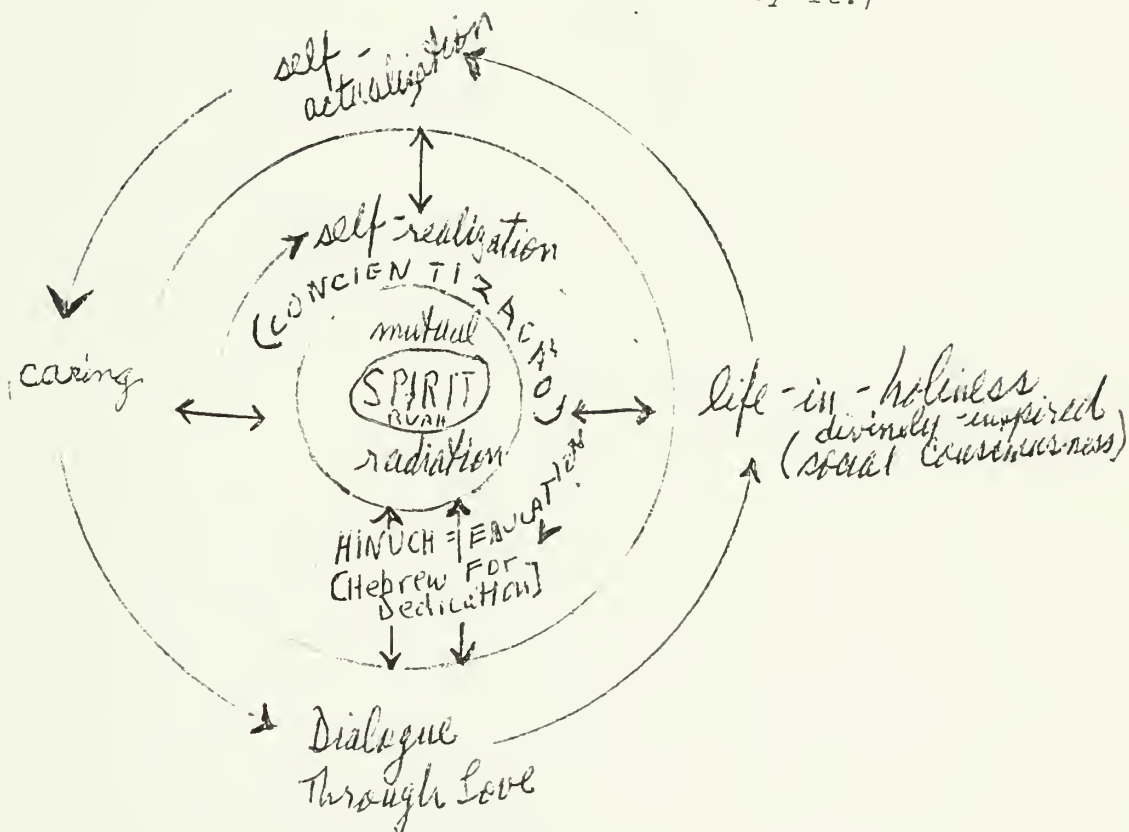 self-
actualization
self-realization
(CONCIENTIZACAO)
mutual
SPIRIT
RUAH
radiation
caring
life-in-holiness
divinely-inspired
(social consciousness)
HINUCH = EDUCATION
[Hebrew FOR
Dedication]
Dialogue
Through Love